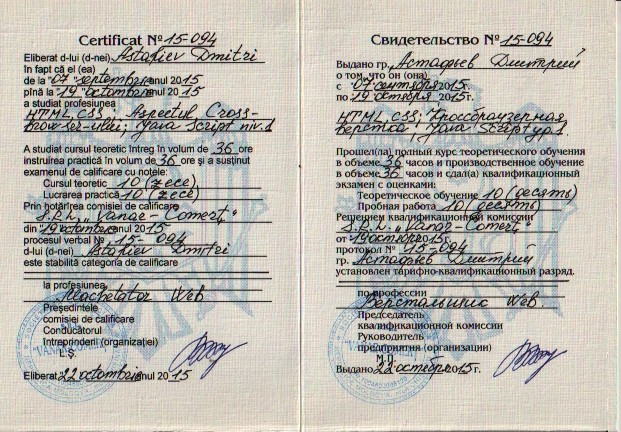 Certificat № 15-094
Eliberat d-lui (d-nei) Astafiev Dmitri
în fapt că el (ea)
de la "07" septembrie anul 2015
pînă la "19" octombrie anul 2015
a studiat profesiunea
HTML, CSS; Aspectul Cross-
browser-ului; Java Script niv.1
A studiat cursul teoretic întreg în volum de 36 ore
instruirea practică în volum de 36 ore și a susținut
examenul de calificare cu notele:
Cursul teoretic 10 (zece)
Lucrarea practică 10 (zece)
Prin hotărîrea comisiei de calificare
S.R.L. „Vanar-Comerț"
din "19" octombrie anul 2015
procesul verbal № 15-094
d-lui (d-nei) Astafiev Dmitri
este stabilită categoria de calificare
la profesiunea
Machetator Web
Președintele
comisiei de calificare
Conducătorul
întreprinderii (organizației)
L.Ș.
Eliberat "22" octombrie anul 2015
Свидетельство № 15-094
Выдано гр. Астафьев Дмитрий
о том, что он (она)
с "07" сентября 2015г.
по "19" октября 2015г.
HTML, CSS; Кроссбраузерная
верстка; Java Script ур.1.
Прошел(ла) полный курс теоретического обучения
в объеме 36 часов и производственное обучение
в объеме 36 часов и сдал(а) квалификационный
экзамен с оценками:
Теоретическое обучение 10 (десять)
Пробная работа 10 (десять)
Решением квалификационной комиссии
S.R.L. „Vanar-Comerț"
от "19" октября 2015г.
протокол № 15-094
гр. Астафьев Дмитрий
установлен тарифно-квалификационный разряд.
по профессии
Верстальщик Web
Председатель
квалификационной комиссии
Руководитель
предприятия (организации)
М.П.
Выдано "22" октября 2015г.